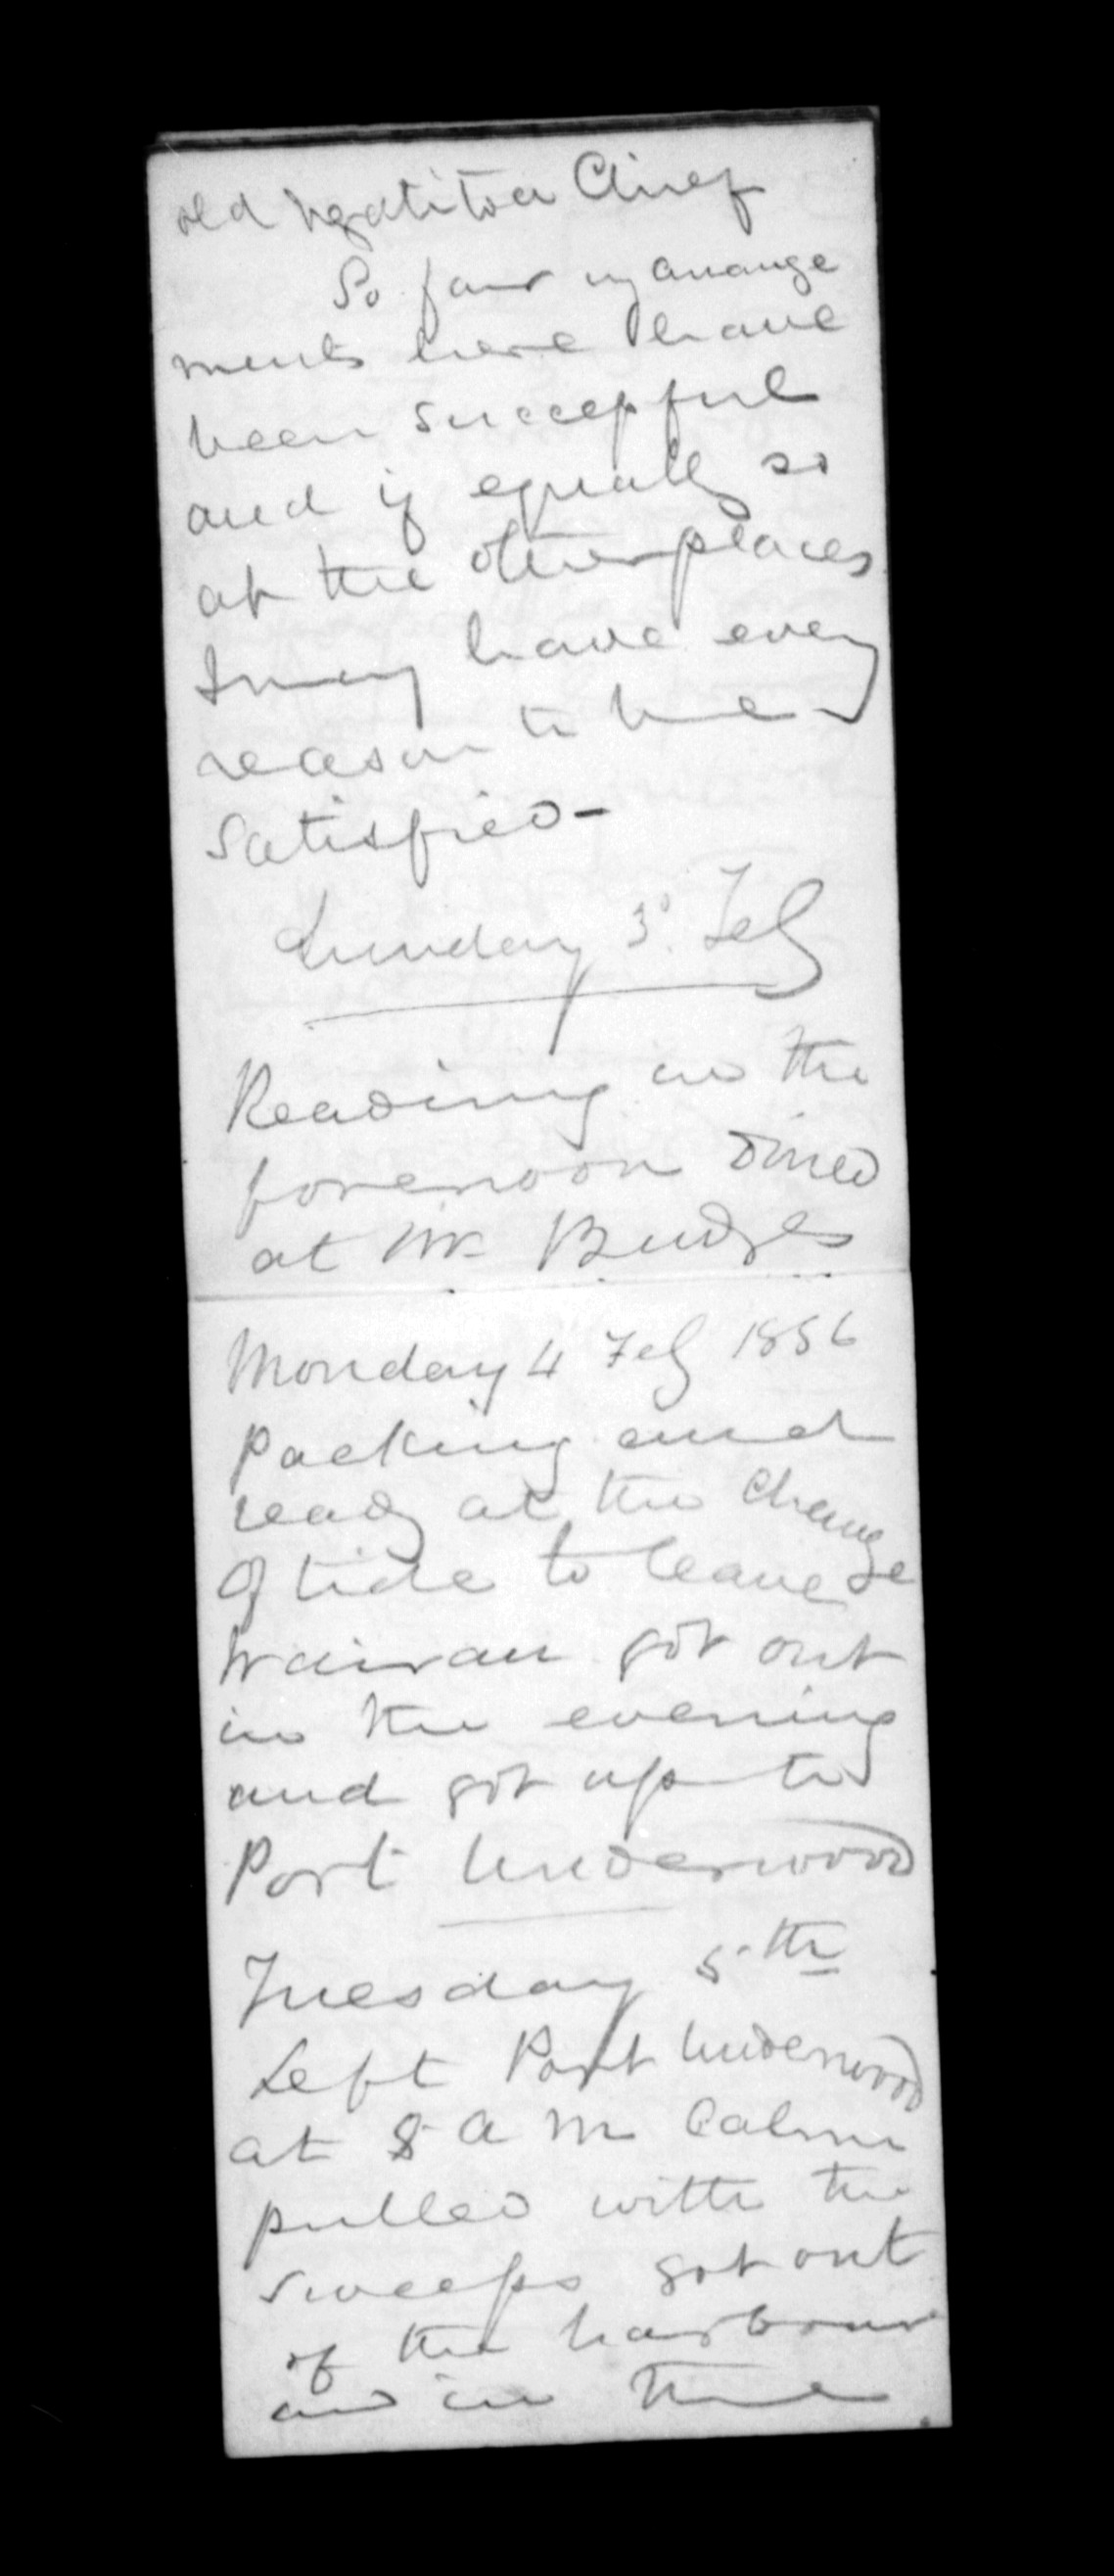 old Ngatitoa Chief
So far my arrange
ments here have
been successful
and if equally so
at the other places
I may have every
reason to be
satisfied -
Sunday 3d. Feb
Reading in the
forenoon dined
at Mr Budges
Monday 4 Feb 1856
Packing and
ready at the change
of tide to leave
Wairau got out
in the evening
and got up to
Port Underwood
Tuesday 5th
Left Port Underwood
at 8 A M Calm
pulled with the
sweeps got out
of the harbour
and in the